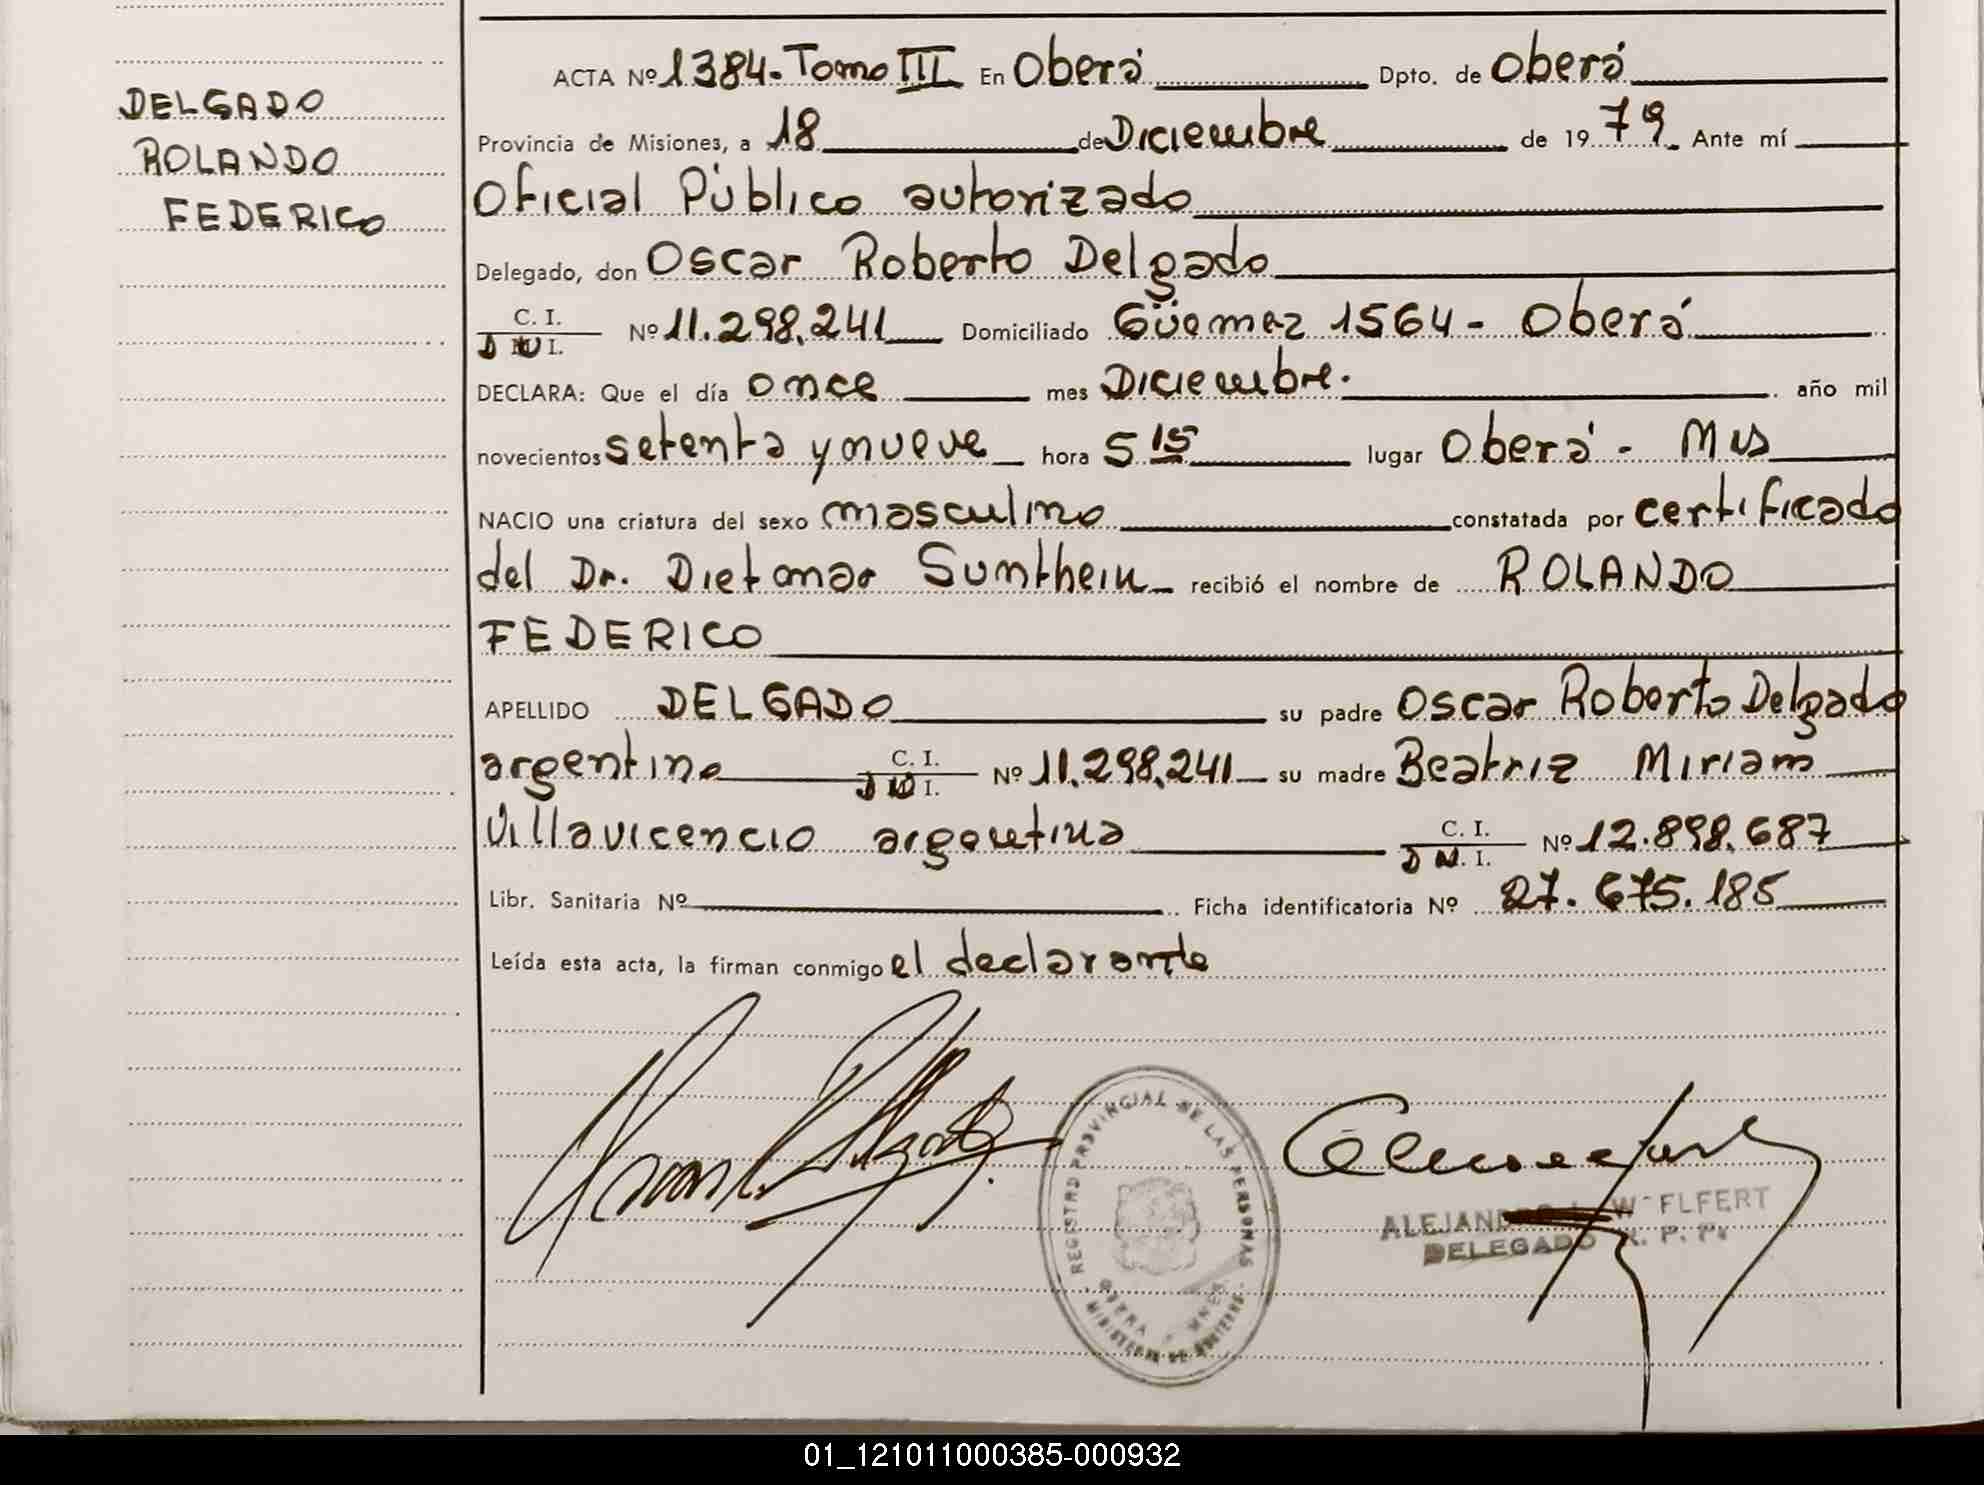 DELGADO
ROLANDO
FEDERICO
ACTA Nº 1384. Tomo III En Oberá Dpto. de Oberá
Provincia de Misiones, a 18 de Diciembre de 1979. Ante mí
Oficial Público autorizado
Delegado, don Oscar Roberto Delgado
C. I.
D N I. Nº 11.298.241 Domiciliado Güemez 1564 - Oberá
DECLARA: Que el día once mes Diciembre. año mil
novecientos setenta y nueve hora 5 15 lugar Oberá - Mis
NACIO una criatura del sexo masculino constatada por certificado
del Dr. Dietmar Sunthein recibió el nombre de ROLANDO
FEDERICO
APELLIDO DELGADO su padre Oscar Roberto Delgado
argentino C. I. D N I. Nº 11.298.241 su madre Beatriz Miriam
Villavicencio argentina C. I. D N. I. Nº 12.898.687
Libr. Sanitaria Nº Ficha identificatoria Nº 27.675.185
Leída esta acta, la firman conmigo el declarante
REGISTRO PROVINCIAL DE LAS PERSONAS
OBERA - MNES.
MINISTERIO DE GOBIERNO
DELEGADO R. P. P.
01_121011000385-000932